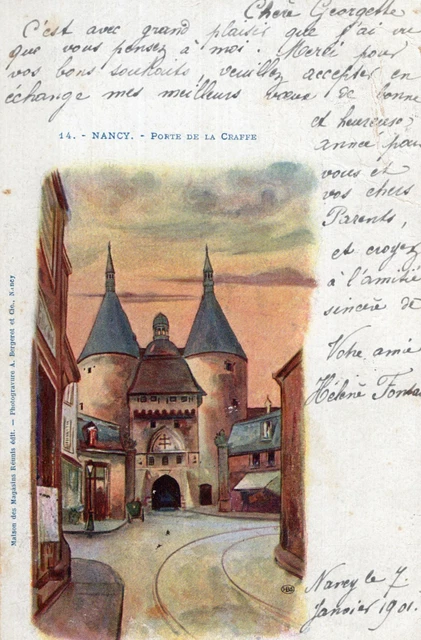 Chère Georgette
C'est avec grand plaisir que j'ai vu
que vous pensez à moi. Merci pour
vos bons souhaits, veuillez accepter en
échange mes meilleurs vœux de bonne
et heureuse
année pour
vous et
vos chers
Parents,
et croyez
à l'amitié
sincère de
Votre amie
Hélène
14. - NANCY. - PORTE DE LA CRAFFE
Maison des Magasins Réunis édit. — Photogravure A. Bergeret et Cie., Nancy
Nancy le 7.
Janvier 1901.